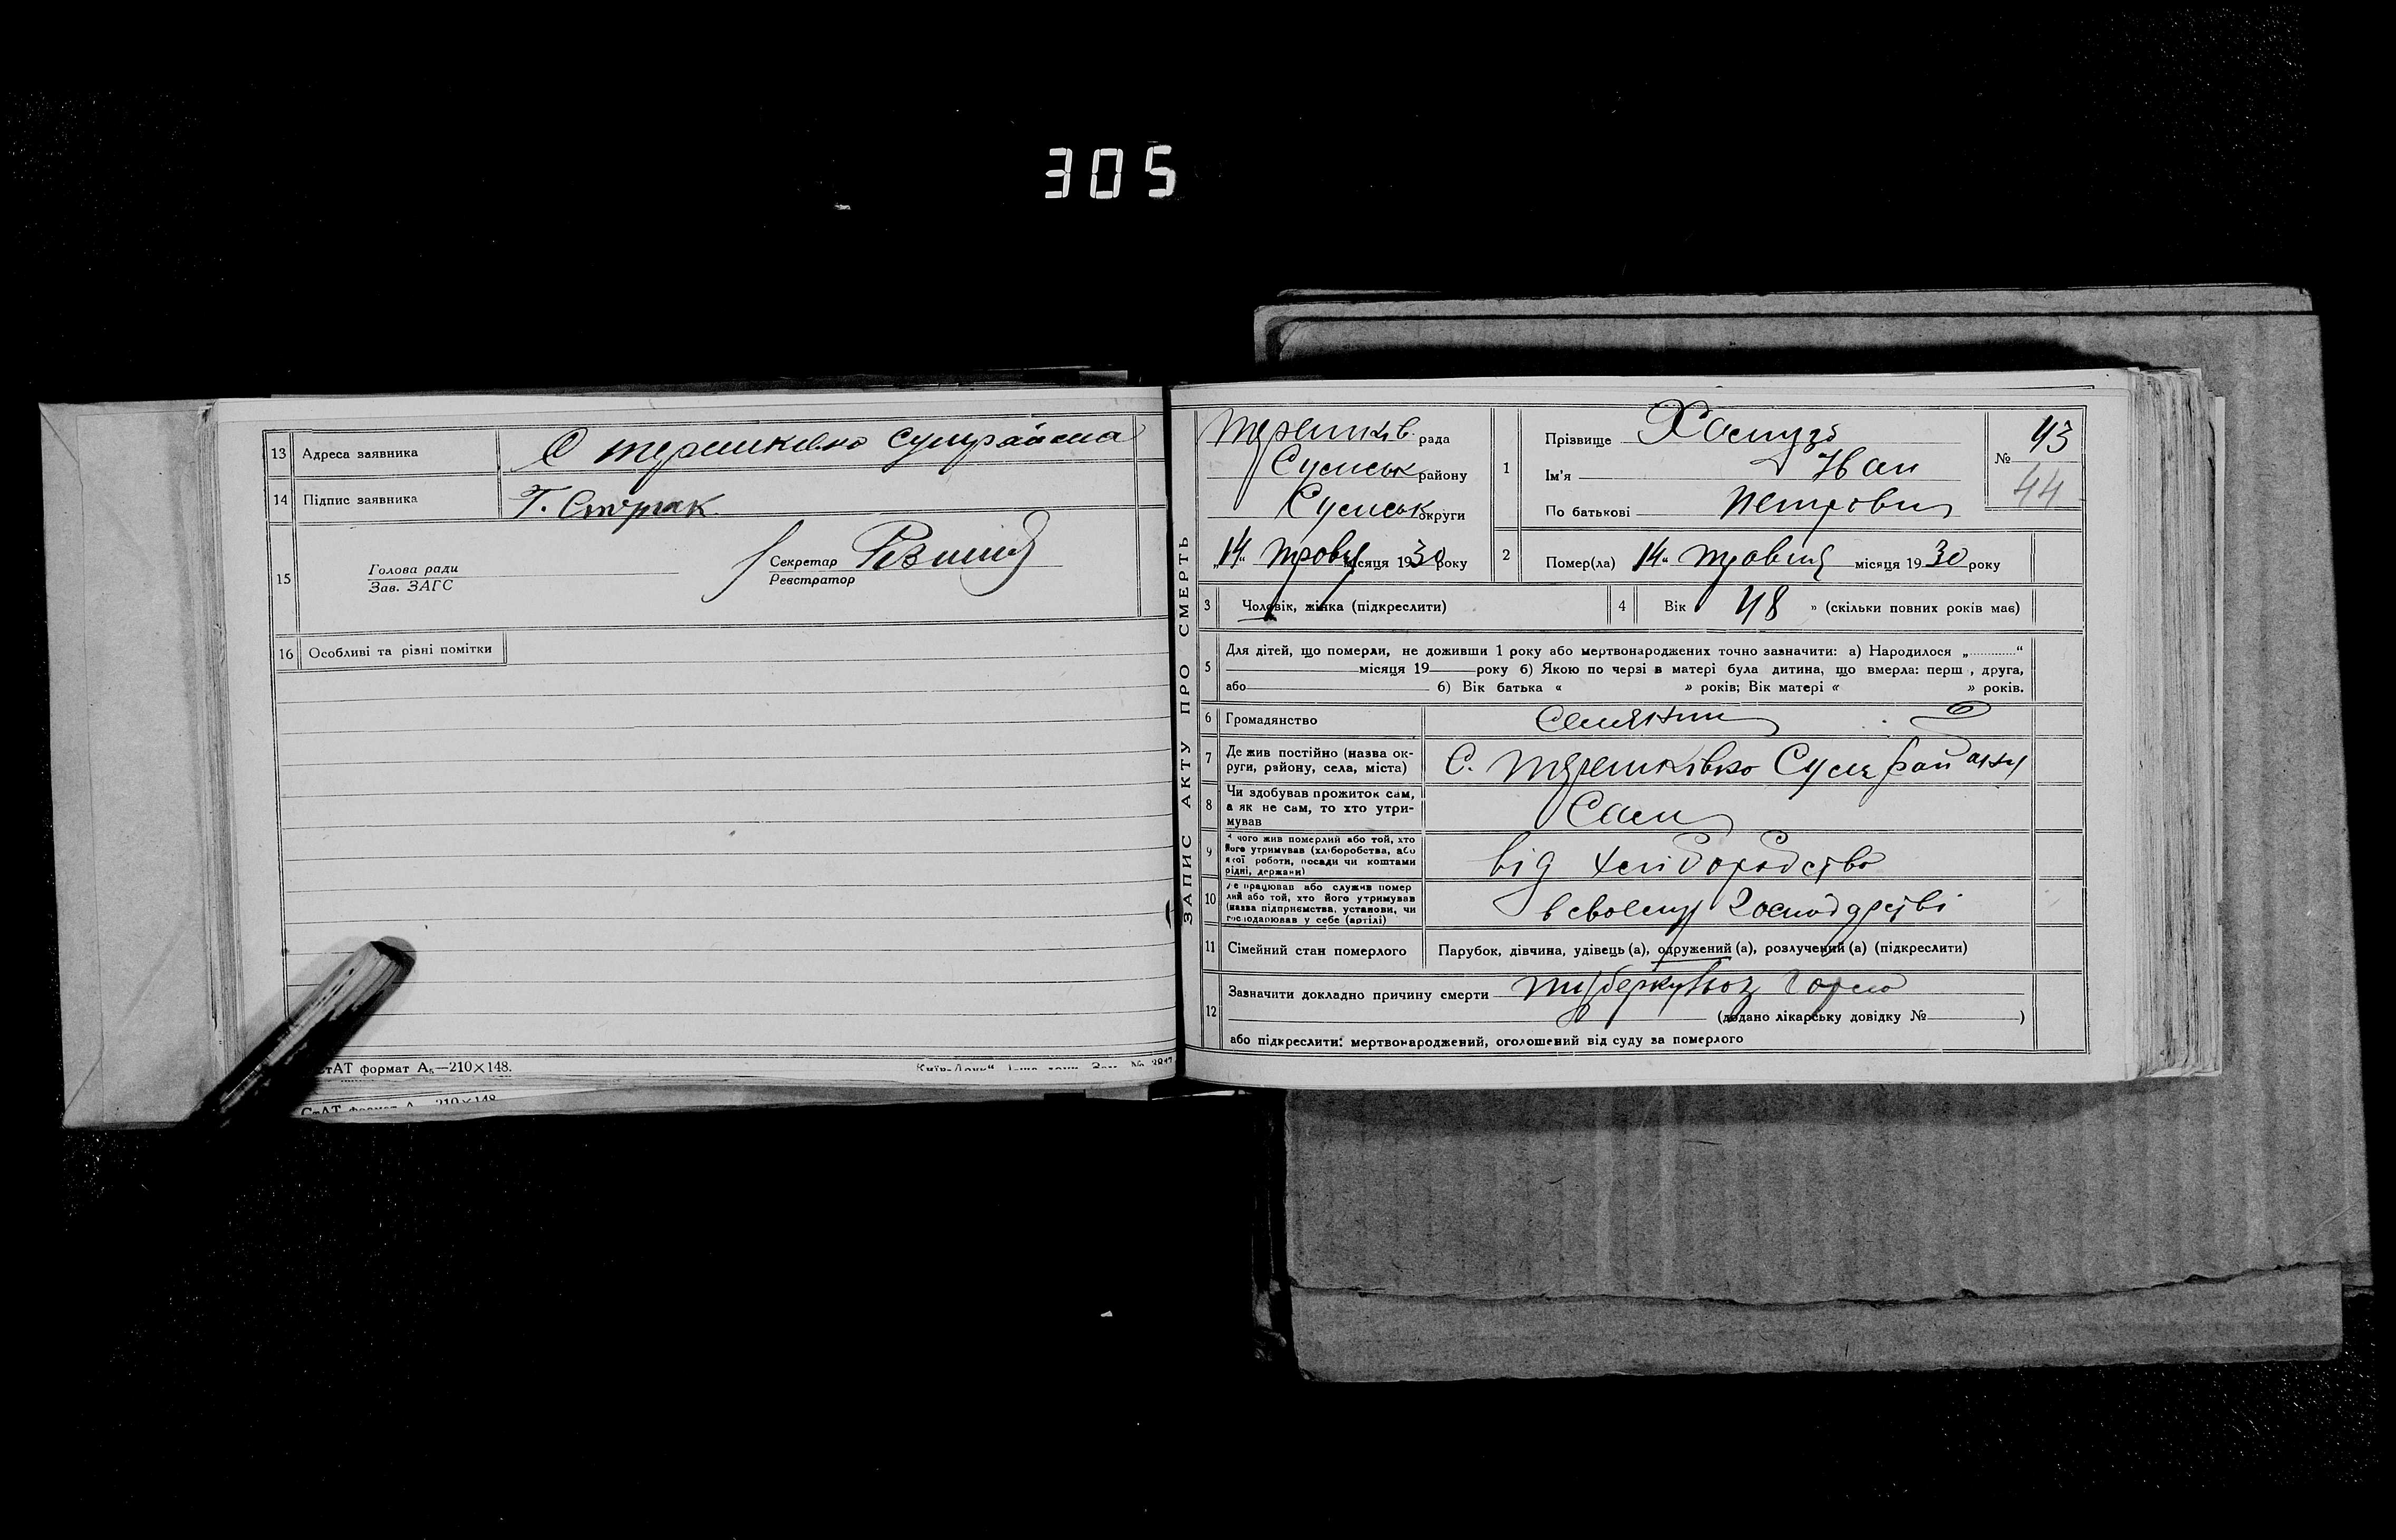 305
13 Адреса заявника С терешківка Сумрайона
14 Підпис заявника Г. Сторак
15 Голова ради
Зав. ЗАГС
Секретар
Реєстратор
16 Особливі та різні помітки
СтАТ формат А₅—210×148.
СтАТ формат А 210×148
ЗАПИС АКТУ ПРО СМЕРТЬ
Терешків. рада
Сумськ району
Сумськ округи
„14“ травня місяця 1930 року
1 Прізвище
Ім'я Іван
По батькові Петрович
№ 43
44
2 Помер(ла) „14“ травня місяця 1930 року
3 Чоловік, жінка (підкреслити)
4 Вік 48 » (скільки повних років має)
5 Для дітей, що померли, не доживши 1 року або мертвонароджених точно зазначити: а) Народилося „............“
місяця 19 року б) Якою по черзі в матері була дитина, що вмерла: перш , друга,
або б) Вік батька « » років; Вік матері « » років.
6 Громадянство Селянин
7 Де жив постійно (назва ок-
руги, району, села, міста) С. Терешківка Сумс району
8 Чи здобував прожиток сам,
а як не сам, то хто утри-
мував Сам
9 З чого жив померлий або той, хто
його утримував (хліборобства, або
якої роботи, посади чи коштами
рідні, держави) від хліборобства
10 Де працював або служив помер
лий або той, хто його утримував
(назва підприємства, установи, чи
господарював у себе (артілі) в своєму господарстві
11 Сімейний стан померлого Парубок, дівчина, удівець (а), одружений (а), розлучений (а) (підкреслити)
12 Зазначити докладно причину смерти туберкульоз горла
(додано лікарську довідку № )
або підкреслити: мертвонароджений, оголошений від суду за померлого